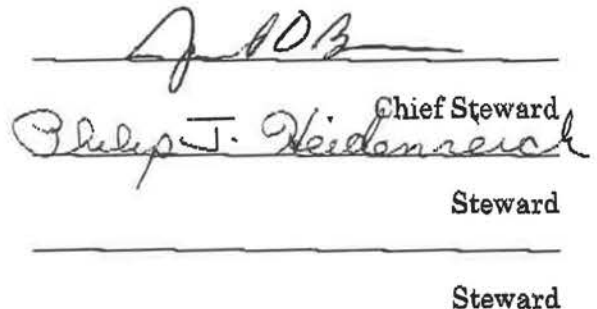 Chief Steward
Philip J. Heidenreich
Steward
Steward